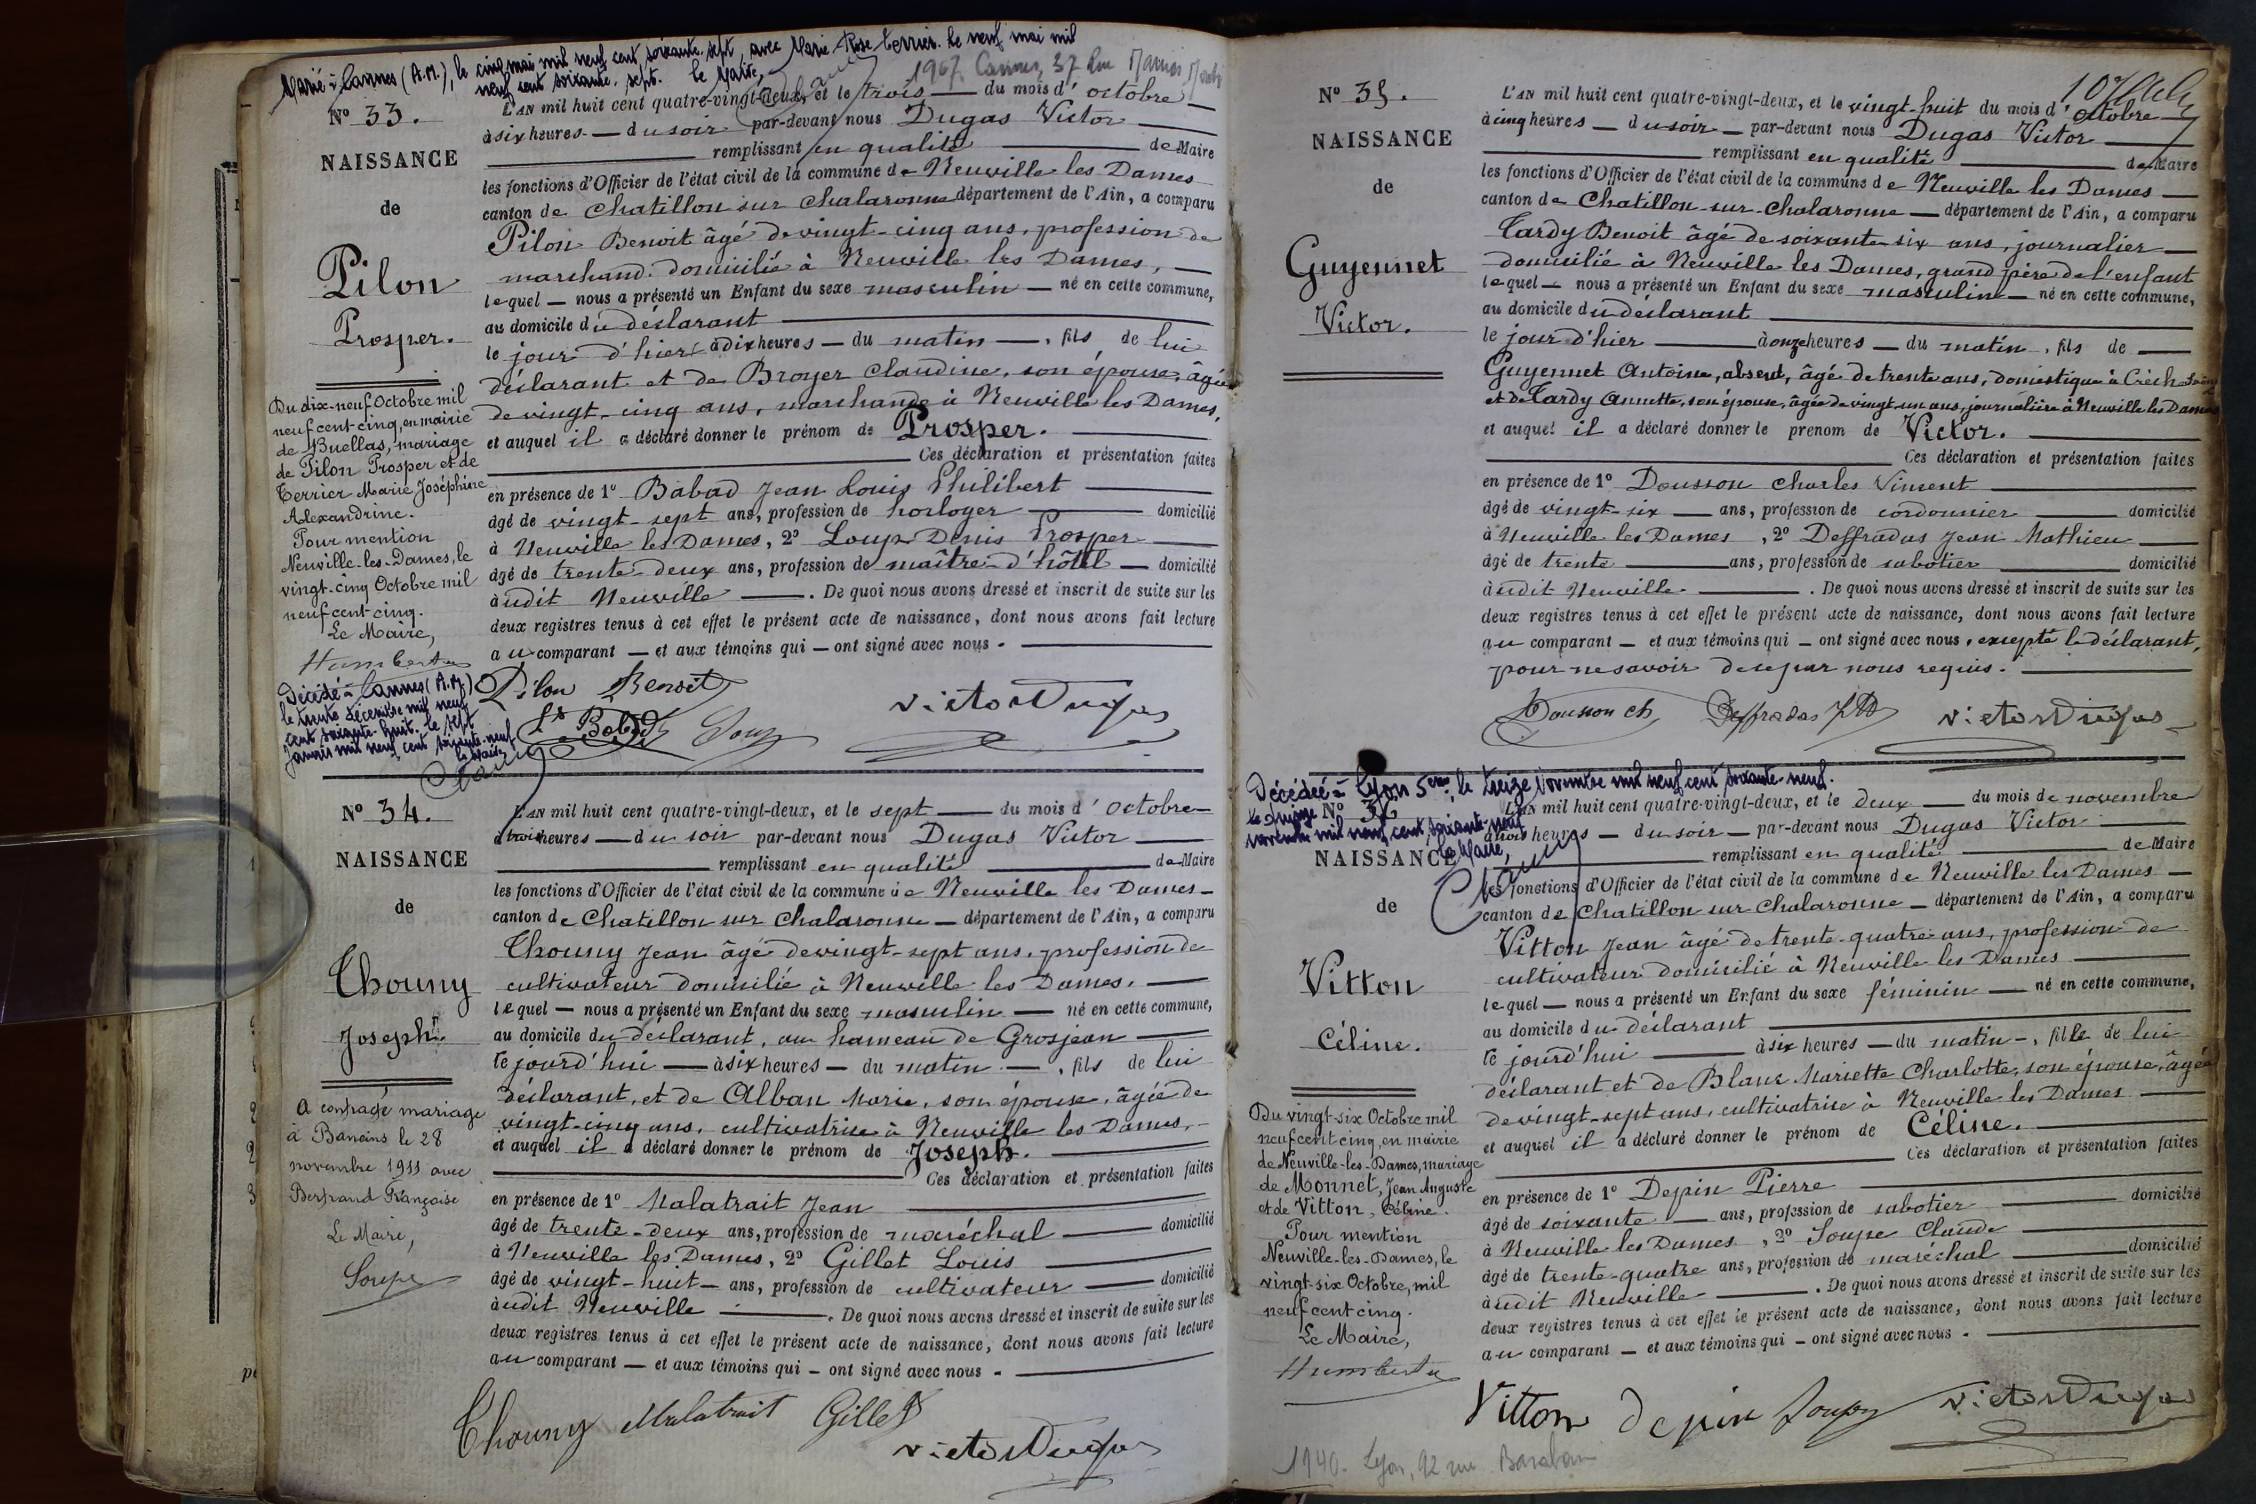 Marié à Cannes (A.M.), le cinq mai mil neuf cent soixante-sept, avec Marie Rose Terrier. le neuf mai mil
neuf cent soixante-sept. Le Maire,
1967 Cannes, 37 Rue
N° 33.
NAISSANCE
de
Pilon
Prosper.
Du dix-neuf Octobre mil
neuf cent-cinq, en mairie
de Buellas, mariage
de Pilon Prosper et de
Terrier Marie Joséphine
Alexandrine.
Pour mention
Neuville-les-Dames, le
vingt-cinq Octobre mil
neuf cent-cinq.
Le Maire,
Humbert
Décédé à Cannes (A.M.)
le trente décembre mil neuf
cent soixante-huit. le sept
janvier mil neuf cent soixante-neuf
Le Maire
L'AN mil huit cent quatre-vingt-deux, et le trois — du mois d'octobre —
à six heures — du soir par-devant nous Dugas Victor
remplissant en qualité de Maire
les fonctions d'Officier de l'état civil de la commune de Neuville les Dames
canton de Chatillon sur Chalaronne département de l'Ain, a comparu
Pilon Benoit âgé de vingt-cinq ans, profession de
marchand domicilié à Neuville les Dames, —
lequel — nous a présenté un Enfant du sexe masculin — né en cette commune,
au domicile du déclarant
le jour d'hier à dix heures — du matin —, fils de lui
déclarant et de Broyer Claudine, son épouse, âgée
de vingt-cinq ans, marchande à Neuville les Dames,
et auquel il a déclaré donner le prénom de Prosper.
Ces déclaration et présentation faites
en présence de 1° Babad Jean Louis Philibert
âgé de vingt-sept ans, profession de horloger — domicilié
à Neuville les Dames, 2° Loup Denis Prosper
âgé de trente-deux ans, profession de maître-d'hôtel — domicilié
àudit Neuville —. De quoi nous avons dressé et inscrit de suite sur les
deux registres tenus à cet effet le présent acte de naissance, dont nous avons fait lecture
au comparant — et aux témoins qui — ont signé avec nous.
Pilon Benoit
Babad Loup Victor Dugas
N° 34.
NAISSANCE
de
Thouny
Joseph.
A contracté mariage
à Baneins le 28
novembre 1911 avec
Bertrand Françoise
Le Maire,
Soupe
L'AN mil huit cent quatre-vingt-deux, et le sept — du mois d'octobre —
à trois heures — du soir par-devant nous Dugas Victor
remplissant en qualité de Maire
les fonctions d'Officier de l'état civil de la commune de Neuville les Dames —
canton de Chatillon sur Chalaronne — département de l'Ain, a comparu
Thouny Jean âgé de vingt-sept ans, profession de
cultivateur domicilié à Neuville les Dames. —
lequel — nous a présenté un Enfant du sexe masculin — né en cette commune,
au domicile du déclarant, au hameau de Grosjean
le jourd'hui — à six heures — du matin —, fils de lui
déclarant, et de Alban Marie, son épouse, âgée de
vingt-cinq ans, cultivatrice à Neuville les Dames, —
et auquel il a déclaré donner le prénom de Joseph.
Ces déclaration et présentation faites
en présence de 1° Malatrait Jean
âgé de trente-deux ans, profession de maréchal — domicilié
à Neuville les Dames, 2° Gillet Louis
âgé de vingt-huit — ans, profession de cultivateur — domicilié
àudit Neuville —. De quoi nous avons dressé et inscrit de suite sur les
deux registres tenus à cet effet le présent acte de naissance, dont nous avons fait lecture
au comparant — et aux témoins qui — ont signé avec nous.
Thouny Malatrait Gillet
Victor Dugas
N° 35.
NAISSANCE
de
Guyennet
Victor.
L'AN mil huit cent quatre-vingt-deux, et le vingt-huit du mois d'octobre
à cinq heures — du soir — par-devant nous Dugas Victor
remplissant en qualité de Maire
les fonctions d'Officier de l'état civil de la commune de Neuville les Dames —
canton de Chatillon-sur-Chalaronne — département de l'Ain, a comparu
Tardy Benoit âgé de soixante-six ans, journalier —
domicilié à Neuville les Dames, grand père de l'enfant
lequel — nous a présenté un Enfant du sexe masculin — né en cette commune,
au domicile du déclarant
le jour d'hier — à onze heures — du matin, fils de —
Guyennet Antoine, absent, âgé de trente ans, domestique à Crèches
et de Tardy Annette, son épouse, âgée de vingt-un ans, journalière à Neuville les Dames
et auquel il a déclaré donner le prénom de Victor.
Ces déclaration et présentation faites
en présence de 1° Dousson Charles Vincent
âgé de vingt-six — ans, profession de cordonnier — domicilié
à Neuville les Dames, 2° Deffradas Jean Mathieu
âgé de trente — ans, profession de sabotier — domicilié
àudit Neuville —. De quoi nous avons dressé et inscrit de suite sur les
deux registres tenus à cet effet le présent acte de naissance, dont nous avons fait lecture
au comparant — et aux témoins qui — ont signé avec nous, excepté le déclarant,
pour ne savoir de ce par nous requis.
Dousson Ch Deffradas JM Victor Dugas
Décédée à Lyon 5ème, le treize novembre mil neuf cent soixante-neuf.
novembre mil neuf cent soixante-neuf
Le Maire,
N° 36
NAISSANCE
de
Vitton
Céline.
Du vingt-six Octobre mil
neuf cent cinq, en mairie
de Neuville-les-Dames, mariage
de Monnet, Jean Auguste
et de Vitton, Céline.
Pour mention
Neuville-les-Dames, le
vingt-six Octobre, mil
neuf cent cinq.
Le Maire,
Humbert
L'AN mil huit cent quatre-vingt-deux, et le deux — du mois de novembre
à trois heures — du soir — par-devant nous Dugas Victor
remplissant en qualité de Maire
les fonctions d'Officier de l'état civil de la commune de Neuville les Dames —
canton de Chatillon sur Chalaronne — département de l'Ain, a comparu
Vitton Jean âgé de trente-quatre ans, profession de
cultivateur domicilié à Neuville les Dames
lequel — nous a présenté un Enfant du sexe féminin — né en cette commune,
au domicile du déclarant
le jourd'hui — à six heures — du matin —, fille de lui
déclarant et de Blanc Mariette Charlotte, son épouse, âgée
de vingt-sept ans, cultivatrice à Neuville les Dames
et auquel il a déclaré donner le prénom de Céline.
Ces déclaration et présentation faites
en présence de 1° Depin Pierre
âgé de soixante — ans, profession de sabotier — domicilié
à Neuville les Dames, 2° Soupe Claude
âgé de trente-quatre ans, profession de maréchal — domicilié
àudit Neuville —. De quoi nous avons dressé et inscrit de suite sur les
deux registres tenus à cet effet le présent acte de naissance, dont nous avons fait lecture
au comparant — et aux témoins qui — ont signé avec nous.
Vitton Depin Soupe Victor Dugas
1940. Lyon, 92 rue Baraban